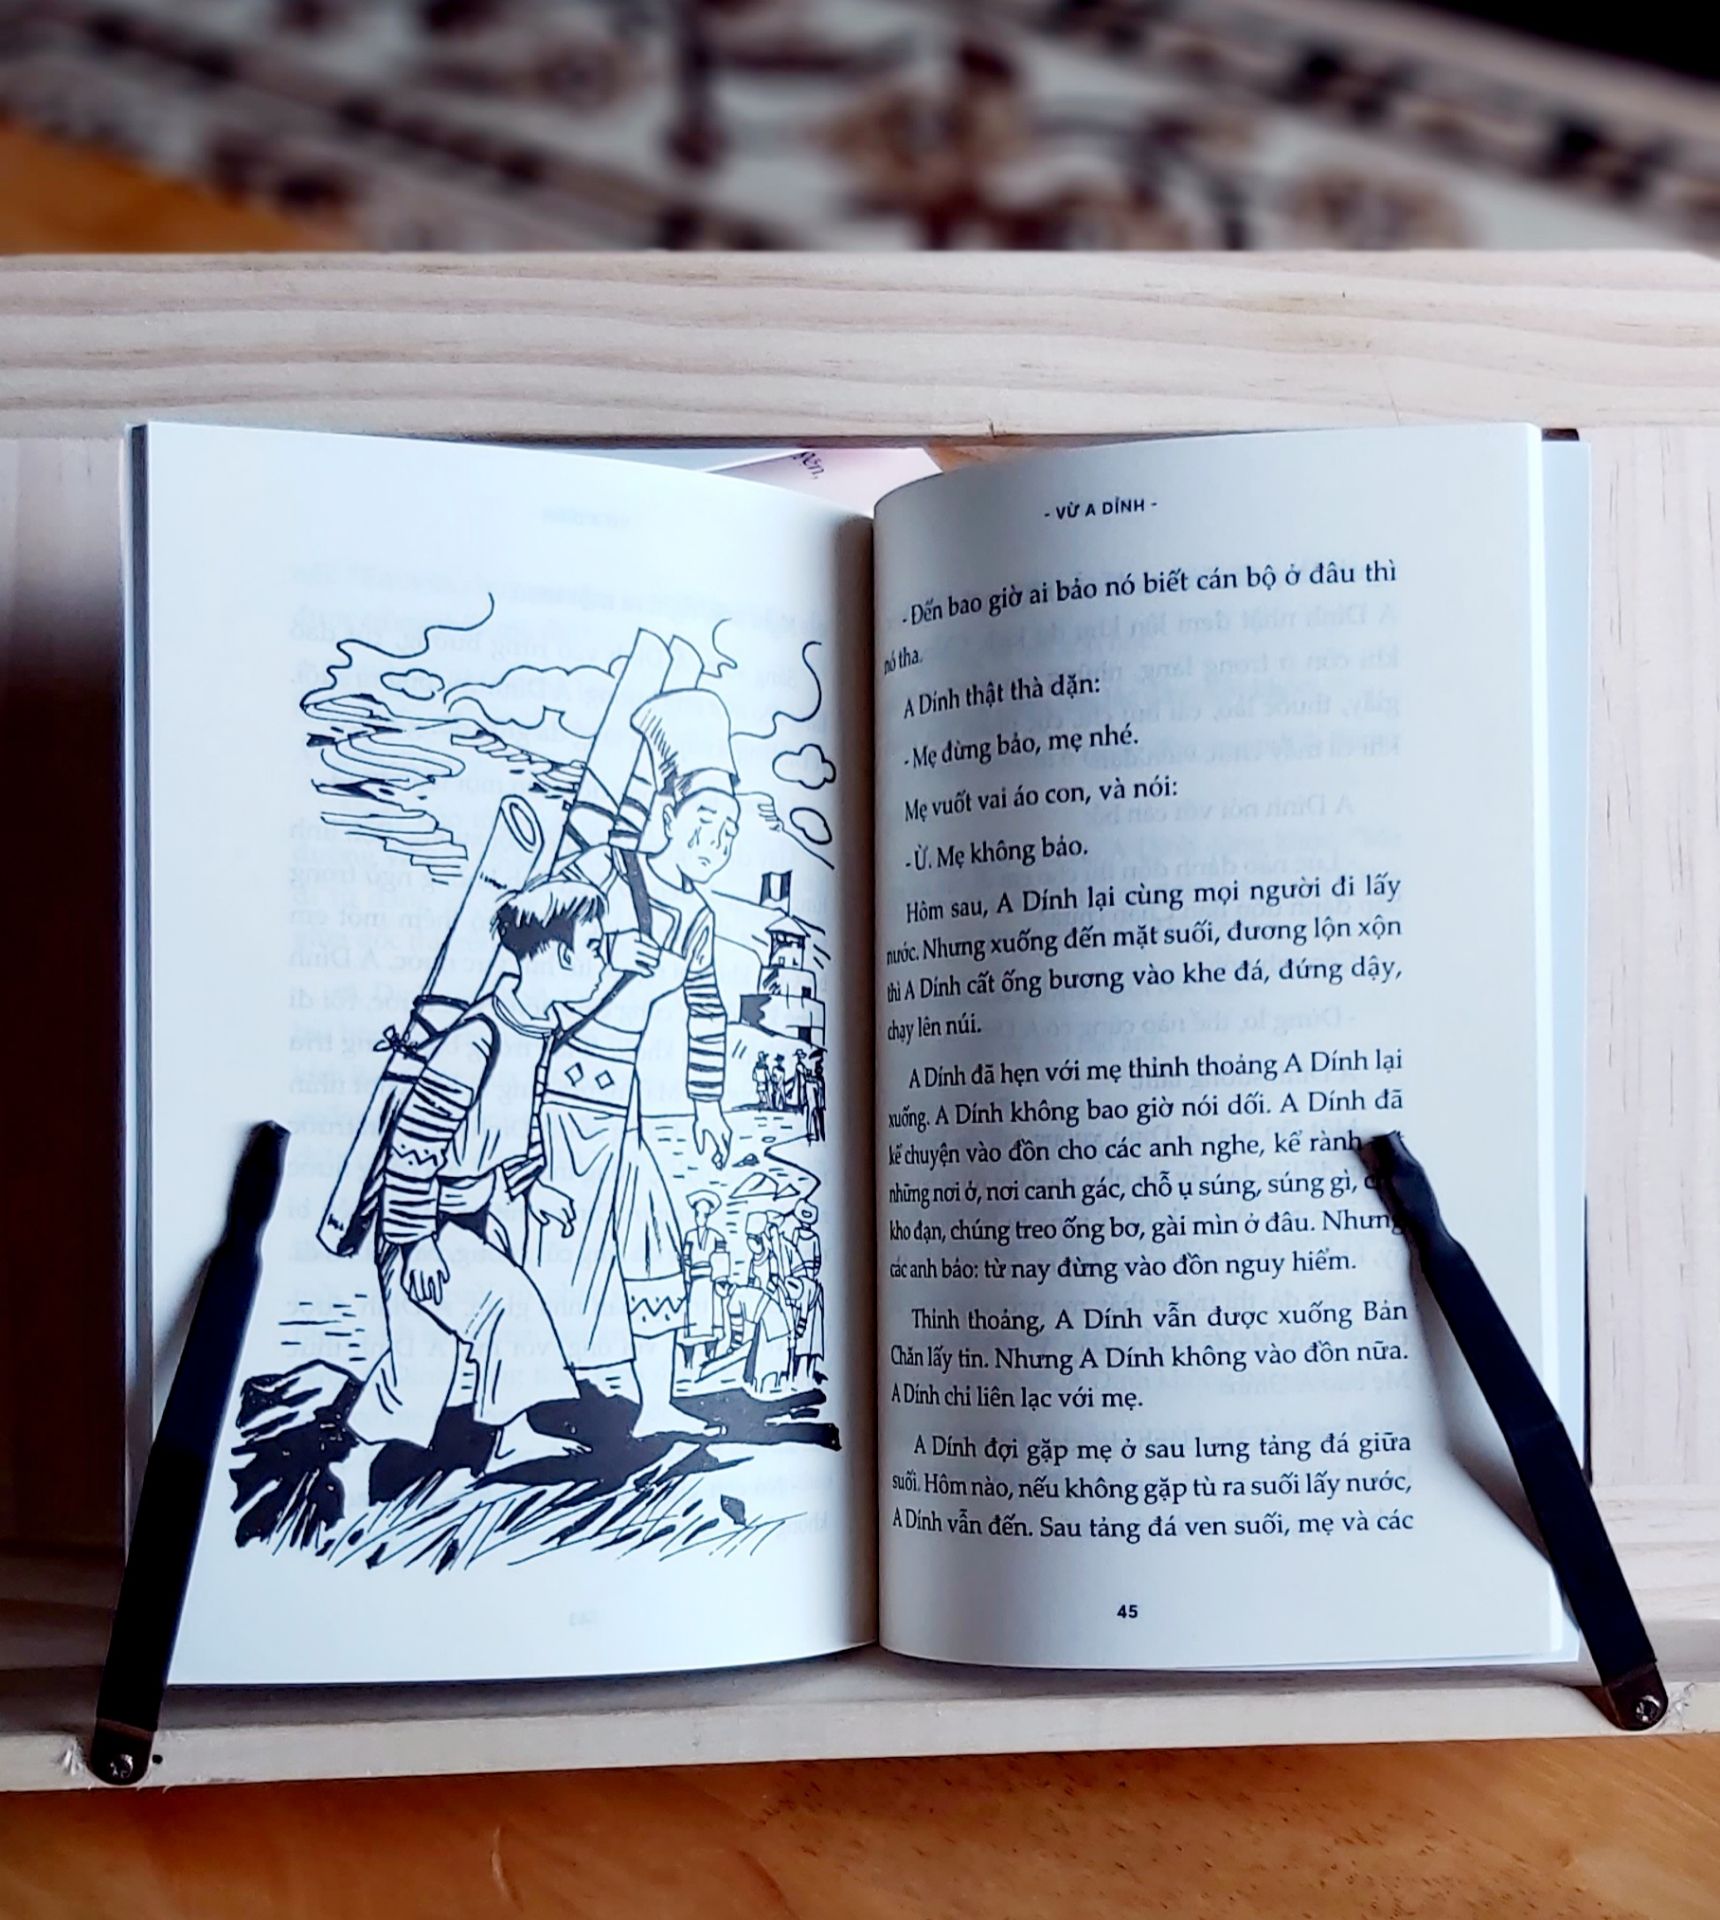 - VỪ A DÍNH -
- Đến bao giờ ai bảo nó biết cán bộ ở đâu thì
nó tha.
A Dính thật thà dặn:
- Mẹ đừng bảo, mẹ nhé.
Mẹ vuốt vai áo con, và nói:
- Ừ. Mẹ không bảo.
Hôm sau, A Dính lại cùng mọi người đi lấy
nước. Nhưng xuống đến mặt suối, đương lộn xộn
thì A Dính cất ống bương vào khe đá, đứng dậy,
chạy lên núi.
A Dính đã hẹn với mẹ thỉnh thoảng A Dính lại
xuống. A Dính không bao giờ nói dối. A Dính đã
kể chuyện vào đồn cho các anh nghe, kể rành
những nơi ở, nơi canh gác, chỗ ụ súng, súng gì,
kho đạn, chúng treo ống bơ, gài mìn ở đâu. Nhưng
các anh bảo: từ nay đừng vào đồn nguy hiểm.
Thỉnh thoảng, A Dính vẫn được xuống Bản
Chăn lấy tin. Nhưng A Dính không vào đồn nữa.
A Dính chỉ liên lạc với mẹ.
A Dính đợi gặp mẹ ở sau lưng tảng đá giữa
suối. Hôm nào, nếu không gặp tù ra suối lấy nước,
A Dính vẫn đến. Sau tảng đá ven suối, mẹ và các
45